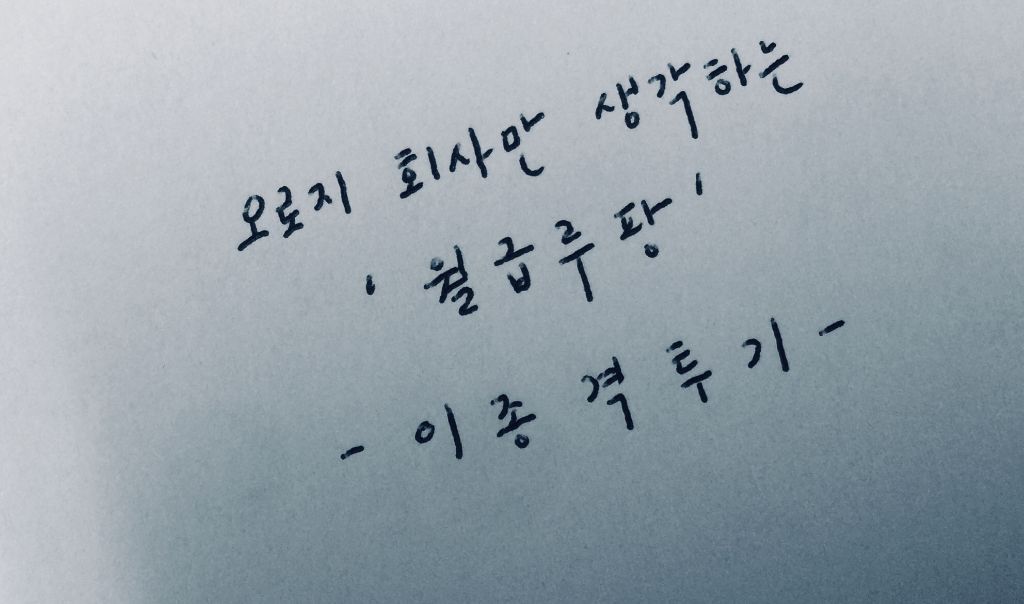 오로지 회사만 생각하는
' 월급루팡 '
- 이종격투기 -